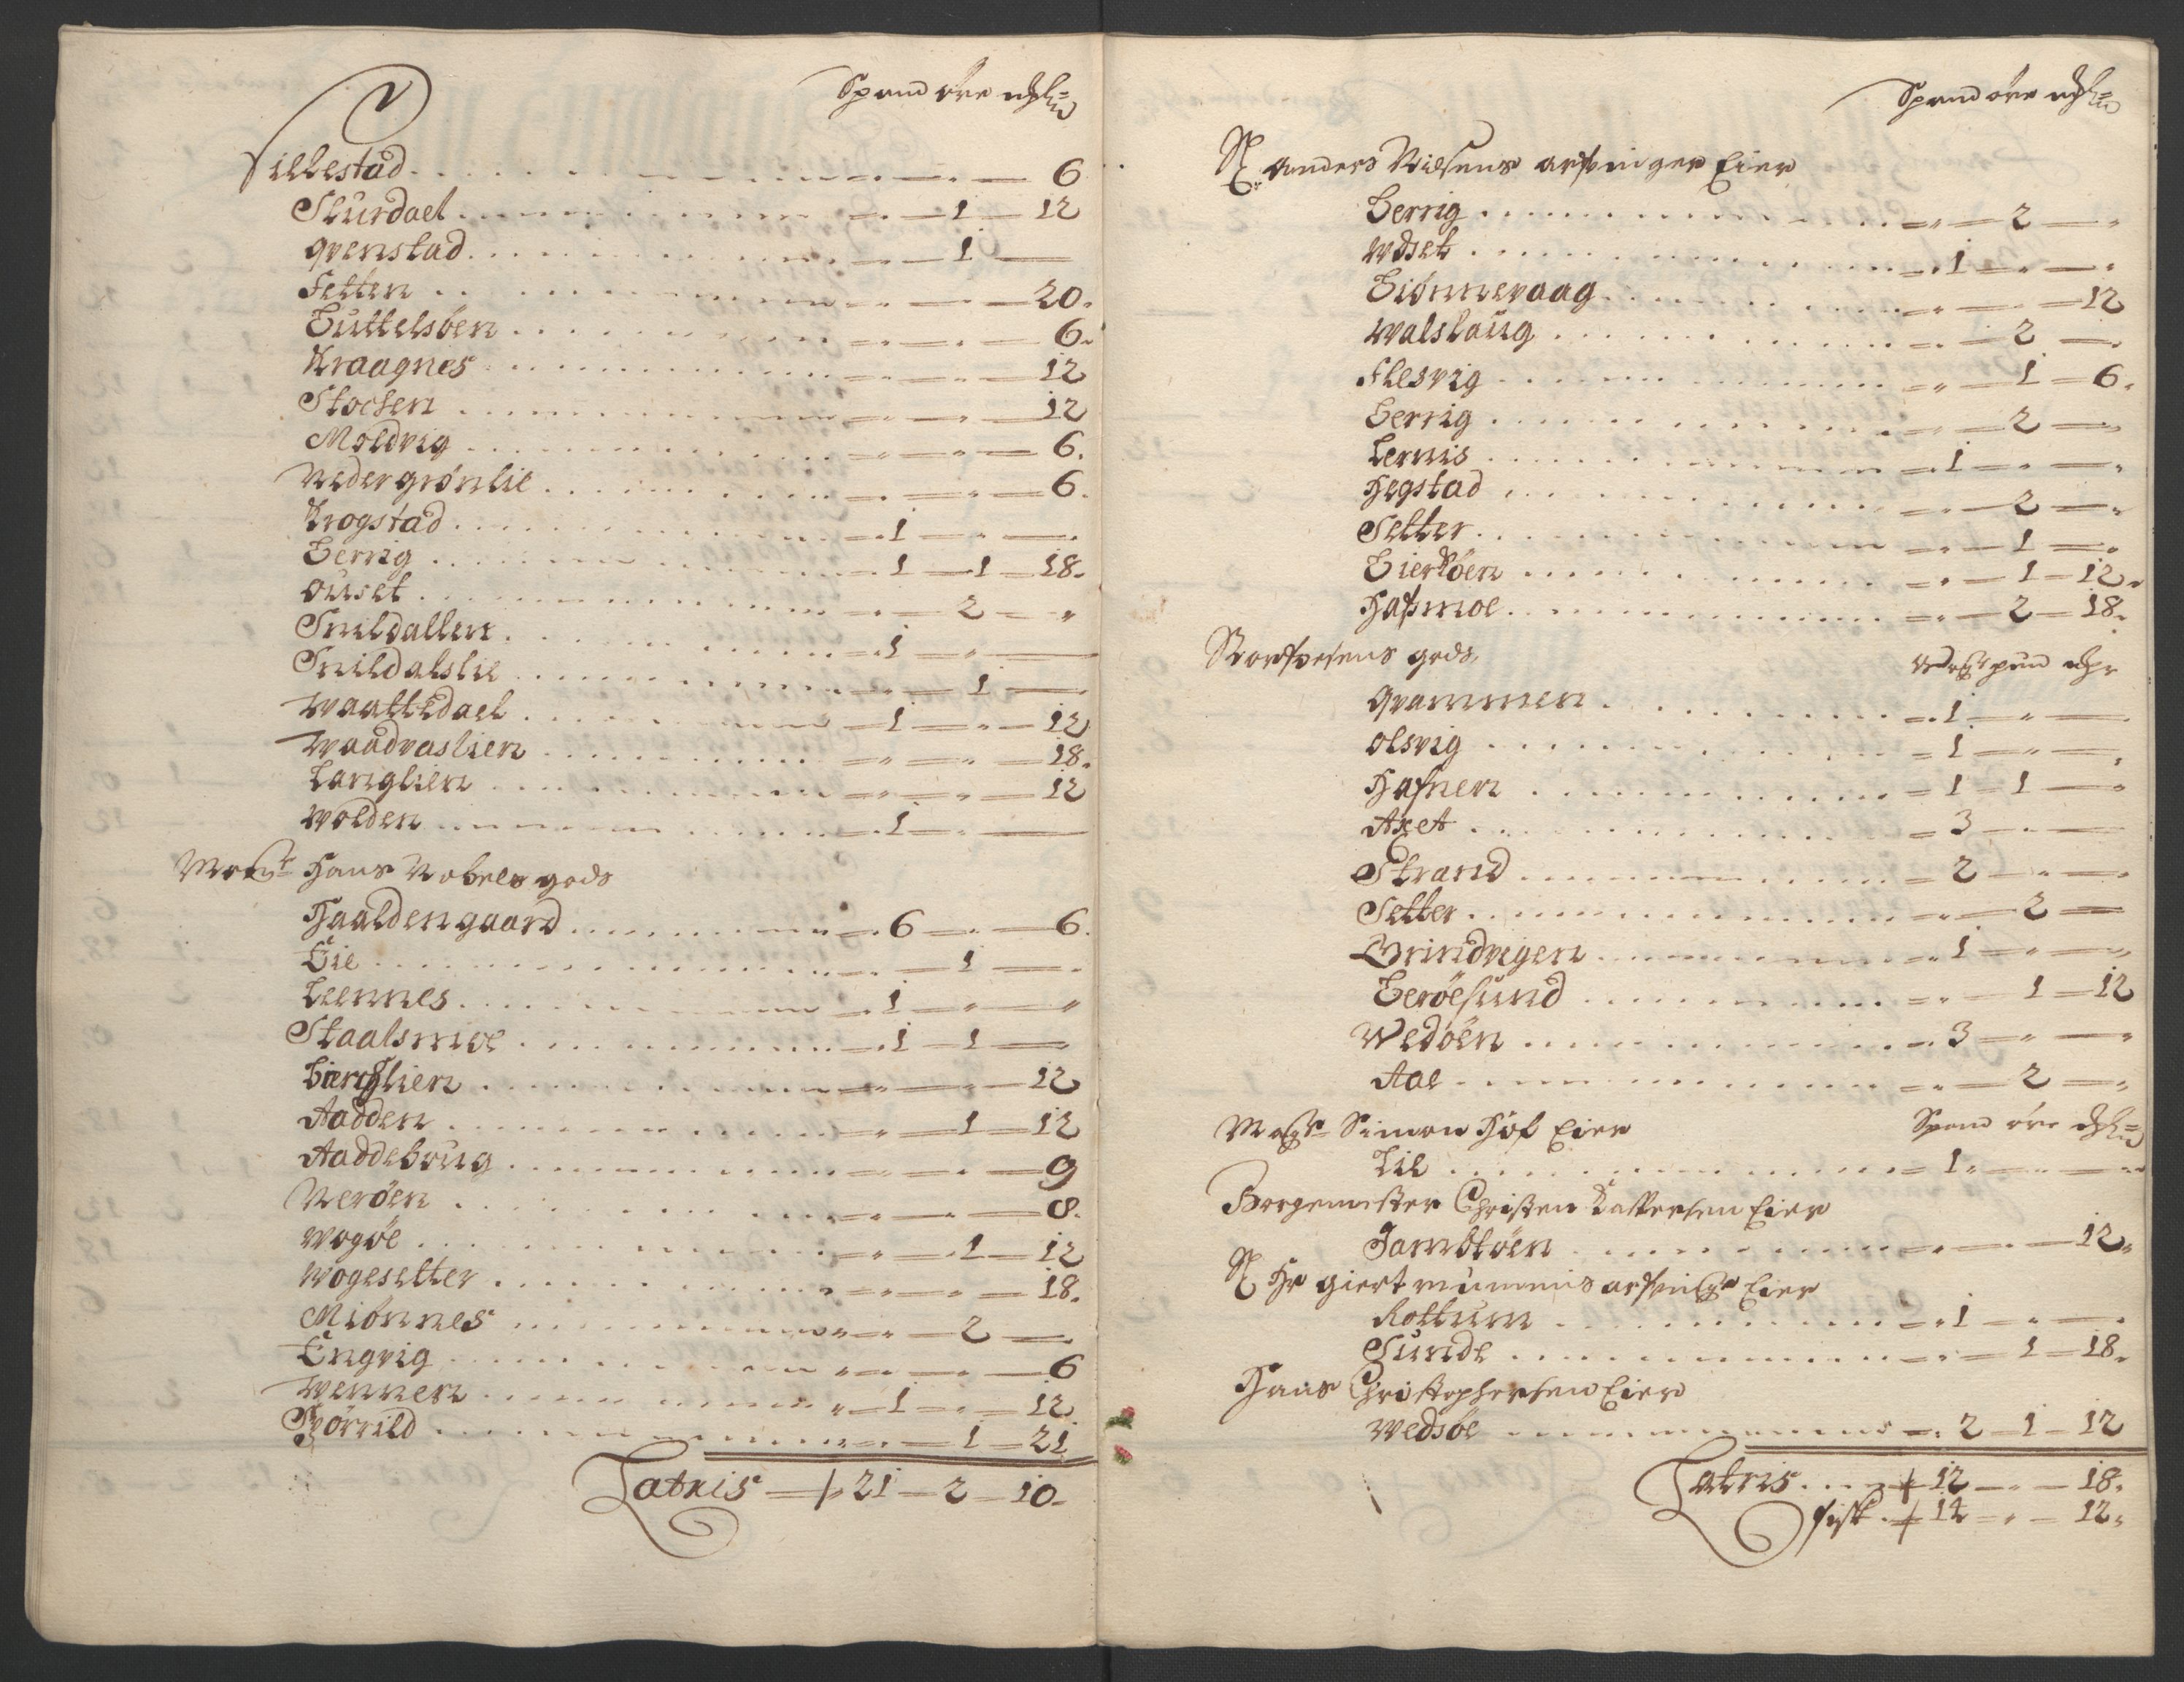 Spand øre
Villestad . . . „ — „ — 6
Skurdael . . . „ — 1 — 12
qvenstad . . . „ — 1 —
Fetten . . . „ — „ — 20.
Buttelsöen . . . „ — „ — 6.
Kraagnes . . . „ — „ — 12
Stoesen . . . „ — „ — 12
Moldvig . . . „ — „ — 6.
Nedergrönlie . . . „ — „ — 6.
Krogstad . . . 1 — „ —
Berrig . . . 1 — 1 — 18.
ouset . . . „ — 2 — „
Snildallen . . . 1 — „ —
Snildalslie . . . „ — 1 —
Waattedael . . . 1 — „ — 12
Waadvaslien . . . „ — „ — 18.
Langlien . . . „ — „ — 12
Wolden . . . 1 — „ —
Hans Nobels gods
Haaldengaard . . . 6 — „ — 6.
Eie . . . „ — 1 —
Lernnes . . . 1 — „ — „
Staalsmoe . . . 1 — 1 —
Berglien . . . „ — „ — 12
Aadden . . . „ — 1 — 12
Aaddeboug . . . „ — „ — 9
Neröen . . . „ — „ — 8.
Wogöe . . . „ — 1 — 12
Wogesetter . . . „ — „ — 18.
Miönnes . . . „ — 2 —
Engvig . . . „ — „ — 6
Wennen . . . 1 — „ — 12
Spörrild . . . „ — 1 — 21
Latris — 21 — 2 — 10.
Spand øre
Sl. Anders Nielsens arfvinger Eier
Berrig . . . „ — 2 — „
Wdset . . . 1 — „ — „
Biönnevaag . . . „ — „ — 12
Walslaug . . . „ — 2 —
Flesvig . . . „ — 1 — 6.
Berrig . . . „ — 2 — „
Lernis . . . 1 — „ — „
Hegstad . . . „ — 2 — „
Setter . . . „ — 1 — „
Bierköen . . . „ — 1 — 12.
Hafsmoe . . . „ — 2 — 18.
gods,
pund
qvammen . . . 1 — „ —
olsvig . . . 1 — „ —
Hafnen . . . 1 — 1 — „
Axet . . . 3 — „ —
Strand . . . 2 — „ —
Setter . . . „ — 2 —
Grindvigen . . . 1 — „ — „
Beröesund . . . „ — 1 — 12
Wedöen . . . 3 — „ — „
Aae . . . „ — 2 — „
Simon Hof Eier Spand øre
Lie . . . 1 — „ —
Borgemester Christen Eier
Jambtöen . . . „ — „ — 12.
Sl. Hr giert mummis Eier
Rottum . . . 1 — „ —
Sunde . . . „ — 1 — 18.
Hans Christophersen Eier
Wedsöe . . . 2 — 1 — 12
Latris . . . 12 — „ — 18.
fisk . 14 — „ — 12.